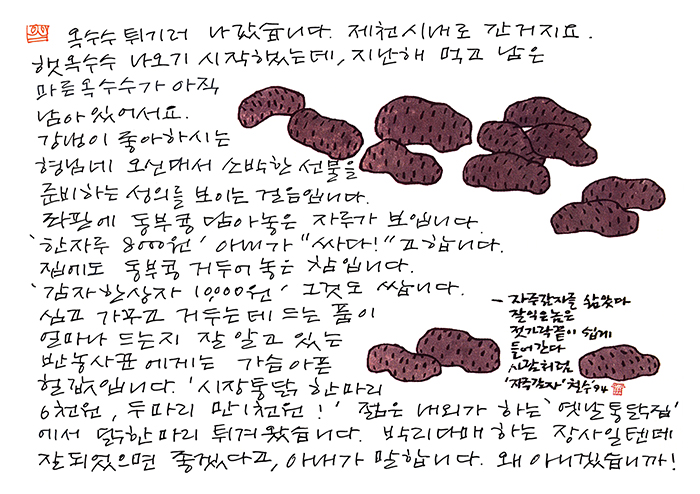 옥수수 튀기러 나갔습니다. 제천시내로 간거지요.
햇옥수수 나오기 시작했는데, 지난해 먹고 남은
마른옥수수가 아직
남아 있어서요.
강냉이 좋아하시는
형님네 오신대서 소박한 선물을
준비하는 성의를 보이는 걸음입니다.
좌판에 동부콩 담아놓은 자루가 보입니다.
'한자루 8000원' 아내가 "싸다!"고합니다.
집에도 동부콩 거두어 놓은 참입니다.
'감자한상자 10,000원' 그것도 쌉니다.
심고 가꾸고 거두는데 드는 품이
얼마나 드는지 잘 알고 있는
반농사꾼에게는 가슴아픈
헐값입니다. '시장통닭 한마리
6천원, 두마리 만1천원!' 젊은 내외가 하는 '옛날통닭집'
에서 닭한마리 튀겨왔습니다. 박리다매 하는 장사일텐데
잘되었으면 좋겠다고, 아내가 말합니다. 왜 아니겠습니까!
- 자주감자를 삶았다
잘익은놈은
젓가락끝이 쉽게
들어간다
시간처럼
'자주감자' 철수 '94